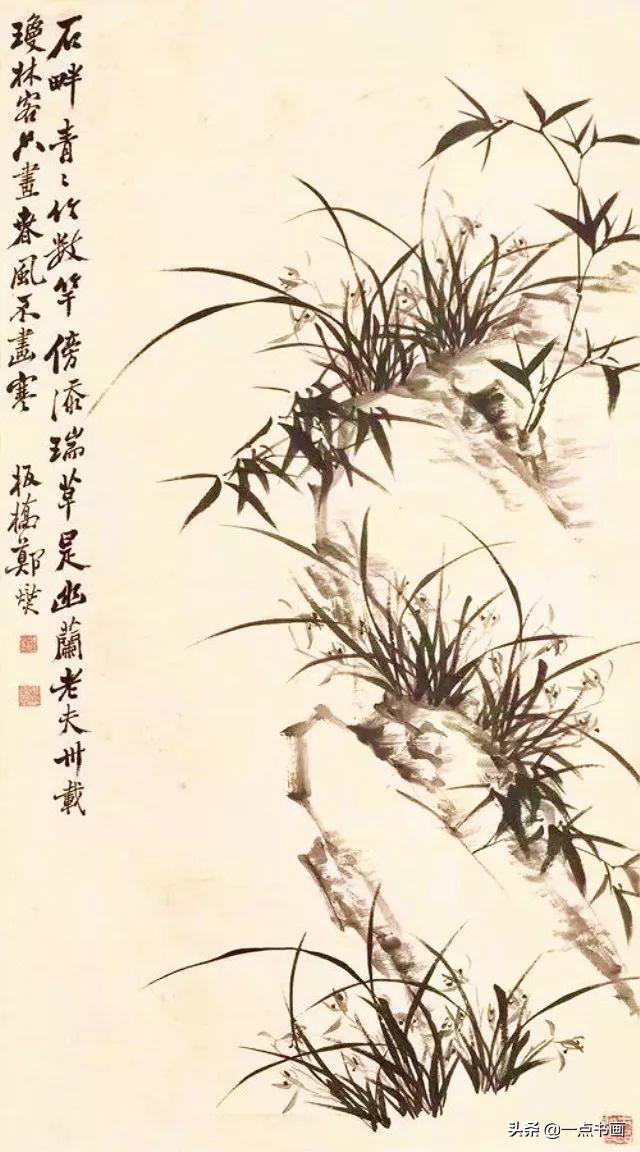 石畔青々竹数竿傍添瑞草是幽蘭老夫卅載
瓊林客只畫春風不畫寒
板橋鄭燮
头条 @一点书画